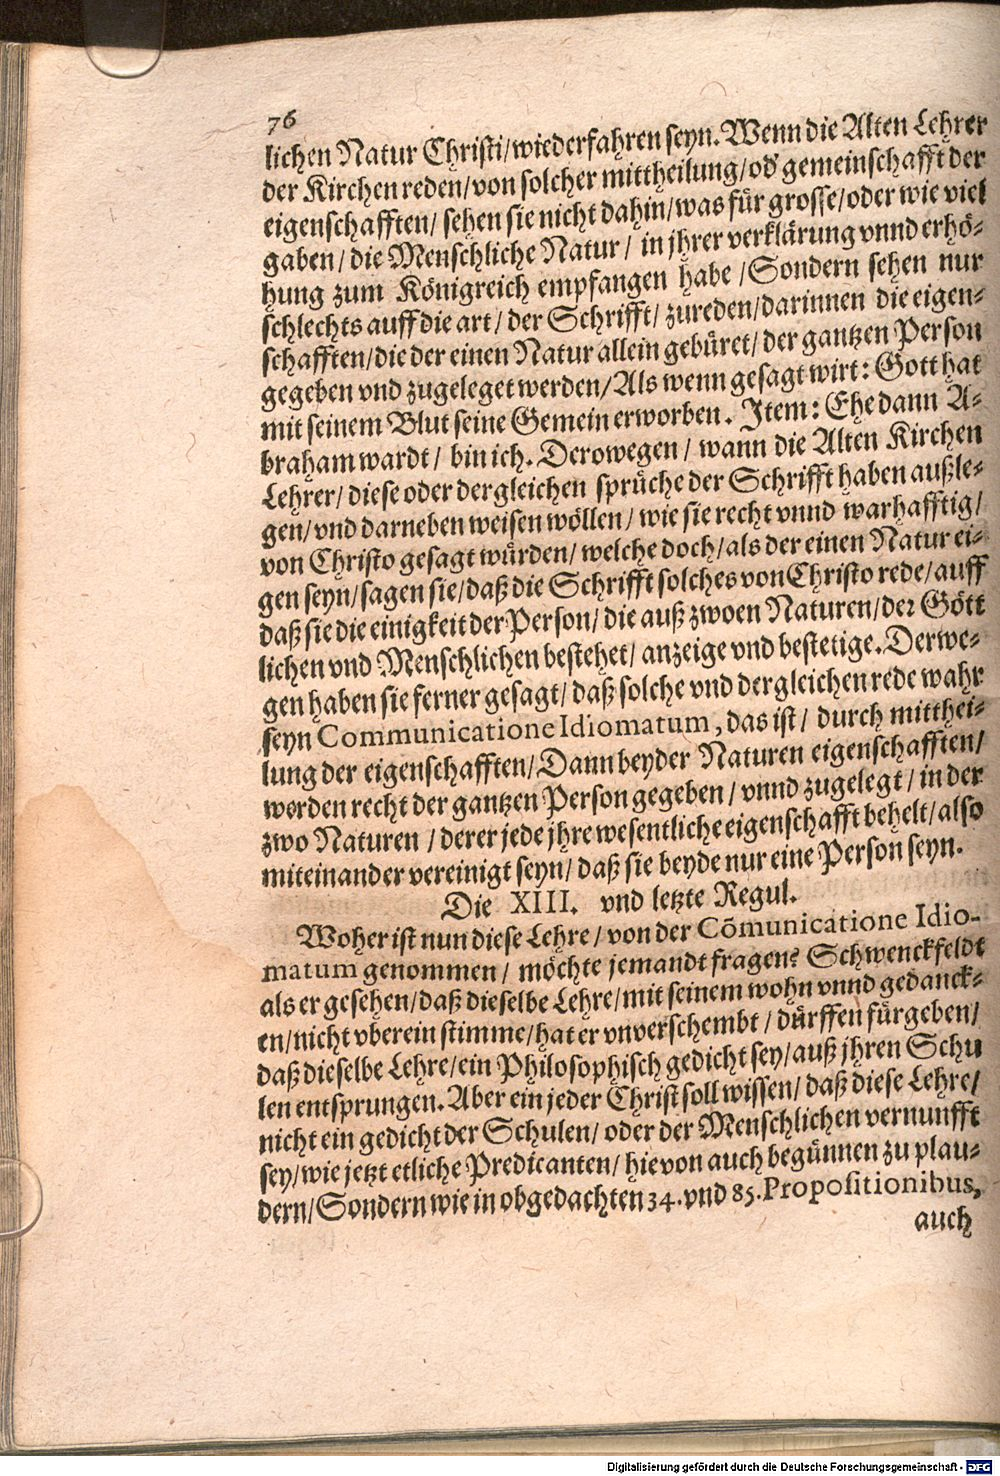 76
lichen Natur Christi/ wiederfahren seyn. Wenn die Alten Lehrer
der Kirchen reden/ von solcher mittheilung/ od' gemeinschafft der
eigenschafften/ sehen sie nicht dahin/ was für grosse/ oder wie viel
gaben/ die Menschliche Natur/ in jhrer verklärung vnnd erhö-
hung zum Königreich empfangen habe/ Sondern sehen nur
schlechts auff die art/ der Schrifft/ zureden/ darinnen die eigen-
schafften/ die der einen Natur allein gebüret/ der gantzen Person
gegeben vnd zugeleget werden/ Als wenn gesagt wirt: Gott hat
mit seinem Blut seine Gemein erworben. Item: Ehe dann A-
braham wardt/ bin ich. Derowegen/ wann die Alten Kirchen
Lehrer/ diese oder dergleichen sprüche der Schrifft haben außle-
gen/ vnd darneben weisen wöllen/ wie sie recht vnnd warhafftig/
von Christo gesagt würden/ welche doch/ als der einen Natur ei-
gen seyn/ sagen sie/ daß die Schrifft solches von Christo rede/ auff
daß sie die einigkeit der Person/ die auß zwoen Naturen/ der Gött
lichen vnd Menschlichen bestehet/ anzeige vnd bestetige. Derwe-
gen haben sie ferner gesagt/ daß solche vnd dergleichen rede wahr
seyn Communicatione Idiomatum, das ist/ durch mitthei-
lung der eigenschafften/ Dann beyder Naturen eigenschafften/
werden recht der gantzen Person gegeben/ vnnd zugelegt/ in der
zwo Naturen/ derer jede jhre wesentliche eigenschafft behelt/ also
miteinander vereinigt seyn/ daß sie beyde nur eine Person seyn.
Die XIII. vnd letzte Regul.
Woher ist nun diese Lehre/ von der Cõmunicatione Idio-
matum genommen/ möchte jemandt fragen? Schwenckfeldt
als er gesehen/ daß dieselbe Lehre/ mit seinem wohn vnnd gedanck-
en/ nicht vberein stimme/ hat er vnverschembt/ dürffen fürgeben/
daß dieselbe Lehre/ ein Philosophisch gedicht sey/ auß jhren Schu
len entsprungen. Aber ein jeder Christ soll wissen/ daß diese Lehre/
nicht ein gedicht der Schulen/ oder der Menschlichen vernunfft
sey/ wie jetzt etliche Predicanten/ hievon auch begünnen zu plau-
dern/ Sondern wie in obgedachten 34. vnd 85. Propositionibus,
auch
Digitalisierung gefördert durch die Deutsche Forschungsgemeinschaft - DFG